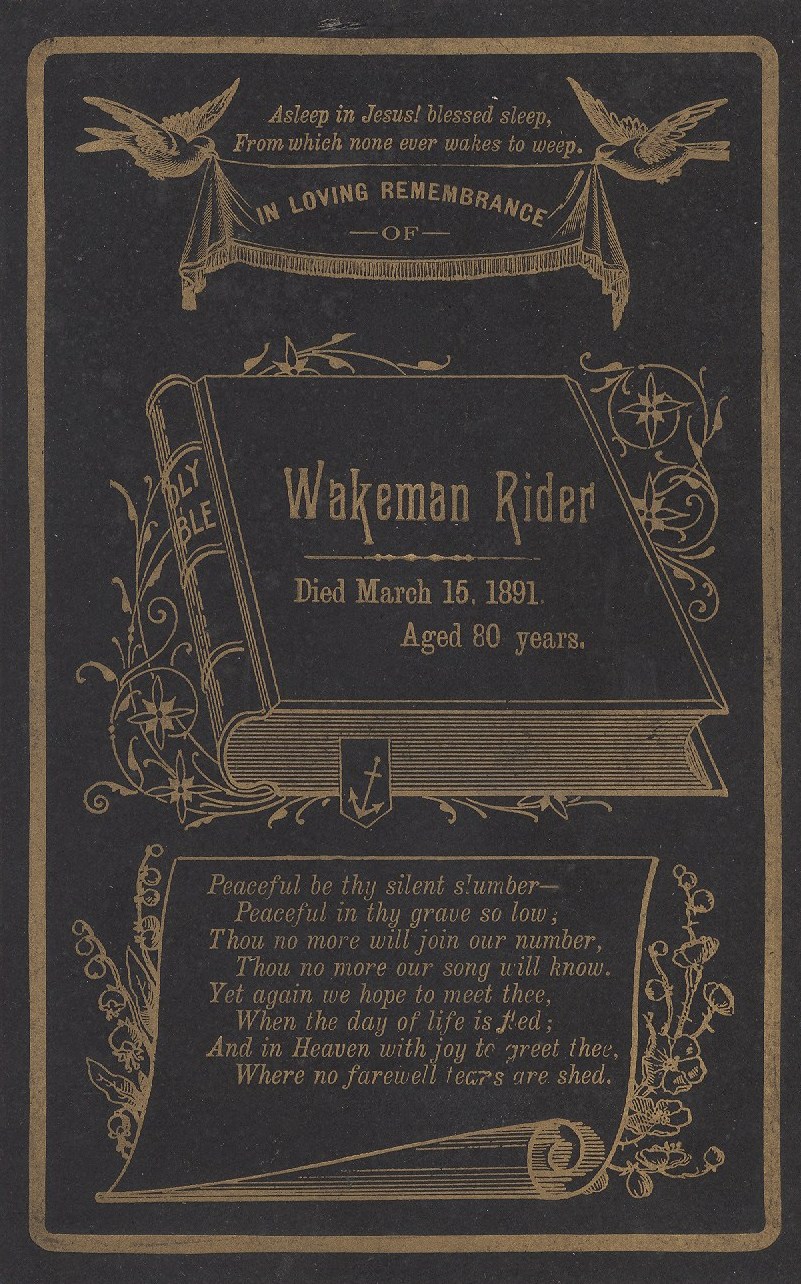 Asleep in Jesus! blessed sleep,
From which none ever wakes to weep.
IN LOVING REMEMBRANCE
—OF—
OLY
BLE
Wakeman Rider
Died March 15, 1891.
Aged 80 years.
Peaceful be thy silent slumber—
Peaceful in thy grave so low;
Thou no more will join our number,
Thou no more our song will know.
Yet again we hope to meet thee,
When the day of life is fled;
And in Heaven with joy to greet thee,
Where no farewell tears are shed.